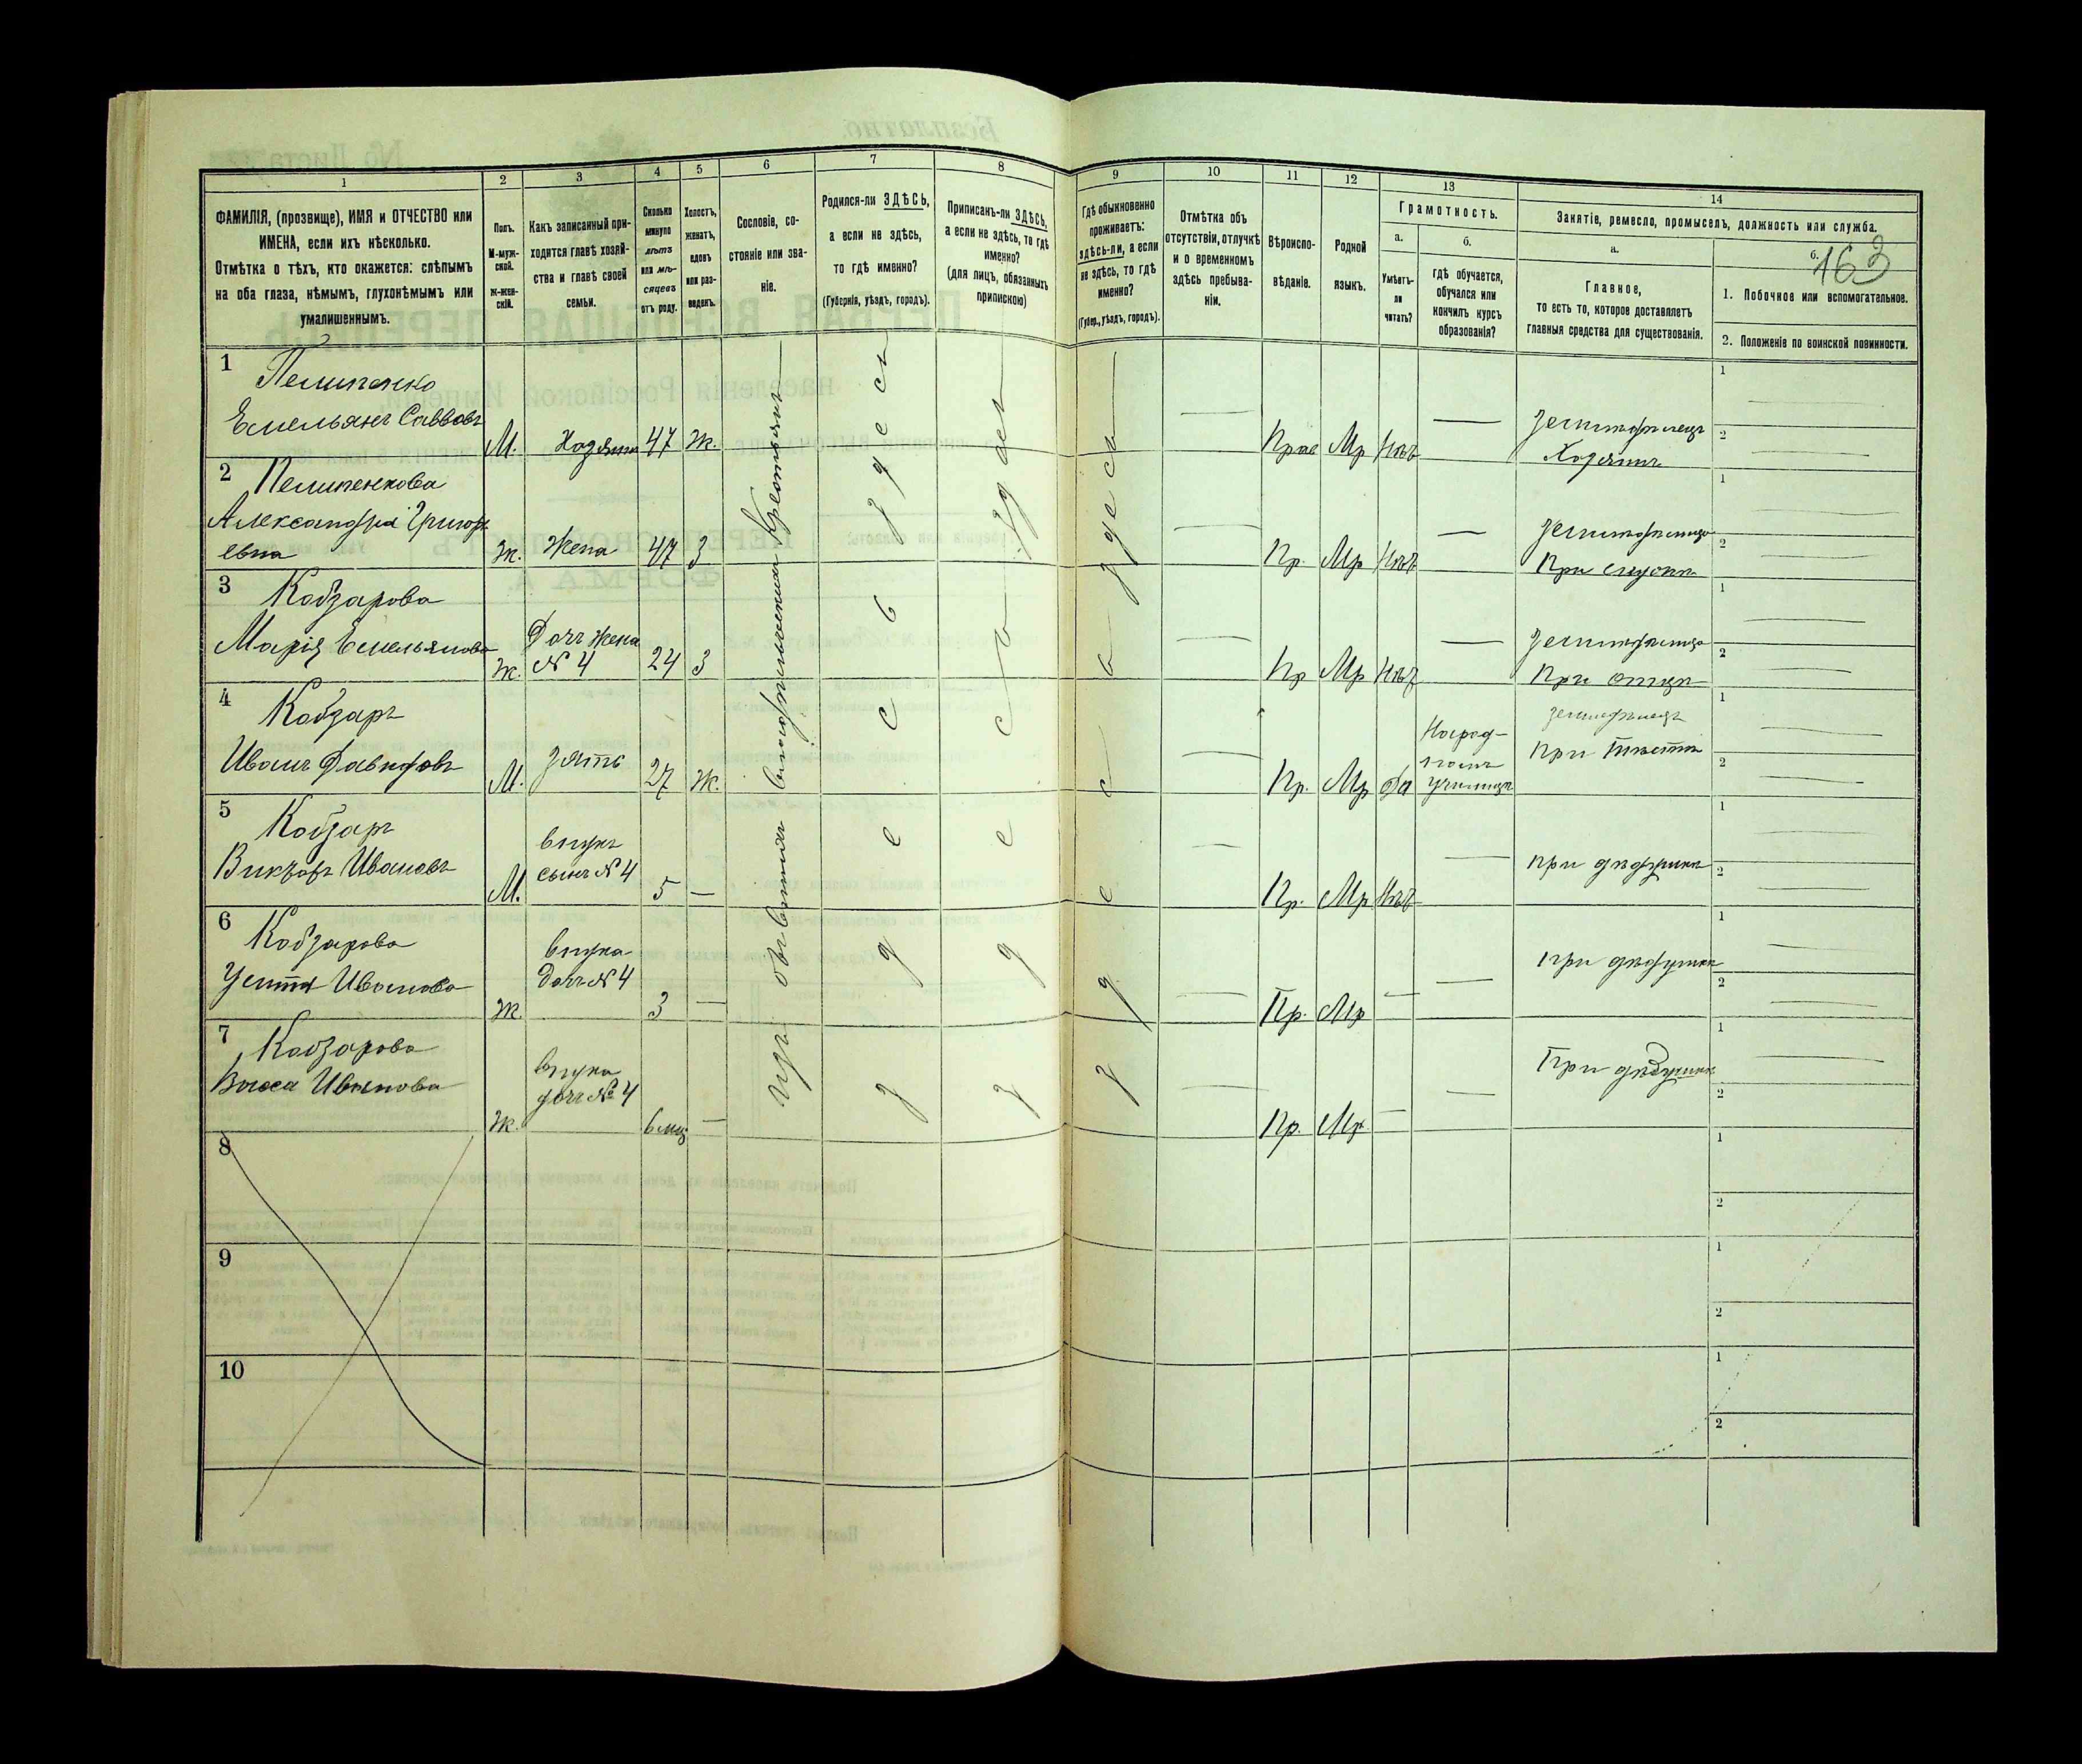 1 2 3 4 5 6 7 8 9 10 11 12 13 14
ФАМИЛІЯ, (прозвище), ИМЯ и ОТЧЕСТВО или ИМЕНА, если ихъ нѣсколько.
Отмѣтка о тѣхъ, кто окажется: слѣпымъ на оба глаза, нѣмымъ, глухонѣмымъ или умалишеннымъ.
Полъ. М-муж-ской. Ж-жен-скій.
Какъ записанный при-ходится главѣ хозяй-ства и главѣ своей семьи.
Сколько минуло лѣтъ или мѣ-сяцевъ отъ роду.
Холостъ, женатъ, вдовъ или раз-веденъ.
Сословіе, со-стояніе или зва-ніе.
Родился-ли ЗДѢСЬ, а если не здѣсь, то гдѣ именно?
(Губернія, уѣздъ, городъ).
Приписанъ-ли ЗДѢСЬ, а если не здѣсь, то гдѣ именно?
(для лицъ, обязанныхъ припискою)
Гдѣ обыкновенно проживаетъ: здѣсь-ли, а если не здѣсь, то гдѣ именно?
(Губер., уѣздъ, городъ).
Отмѣтка объ отсутствіи, отлучкѣ и о временномъ здѣсь пребыва-ніи.
Вѣроиспо-вѣданіе.
Родной языкъ.
Грамотность.
а.
Умѣетъ-ли читать?
б.
гдѣ обучается, обучался или кончилъ курсъ образованія?
Занятіе, ремесло, промыселъ, должность или служба.
а.
Главное,
то есть то, которое доставляетъ главныя средства для существованія.
б.
163
1. Побочное или вспомогательное.
2. Положеніе по воинской повинности.
1 Пелипенко
Емельянъ Саввовъ М. Хозяинъ 47 Ж. Прав Мр Нѣтъ Земледѣлецъ
Хозяинъ
2 Пелипенкова
Александра Григорь
евна Ж. Жена 47 З Пр. Мр Нѣтъ
При
3 Кобзарова
Марія Емельянова Ж. Дочь Жена
№ 4 24 З Пр Мр Нѣтъ
При отцѣ
4 Кобзарь
Иванъ Давидовъ М. Зять 27 Ж. Пр. Мр Да Народ-
номъ
училищѣ
При тестѣ
5 Кобзарь
Викторъ Ивановъ М. внукъ
сынъ № 4 5 Пр. Мр Нѣтъ при дѣдушкѣ
6 Кобзарова
Устинья Иванова Ж. внука
дочь № 4 3 Пр. Мр при дѣдушкѣ
7 Кобзарова
Васса Иванова Ж. внука
дочь № 4 6 мц Пр. Мр При дѣдушкѣ
8
9
10
здесь
здесь
здесь